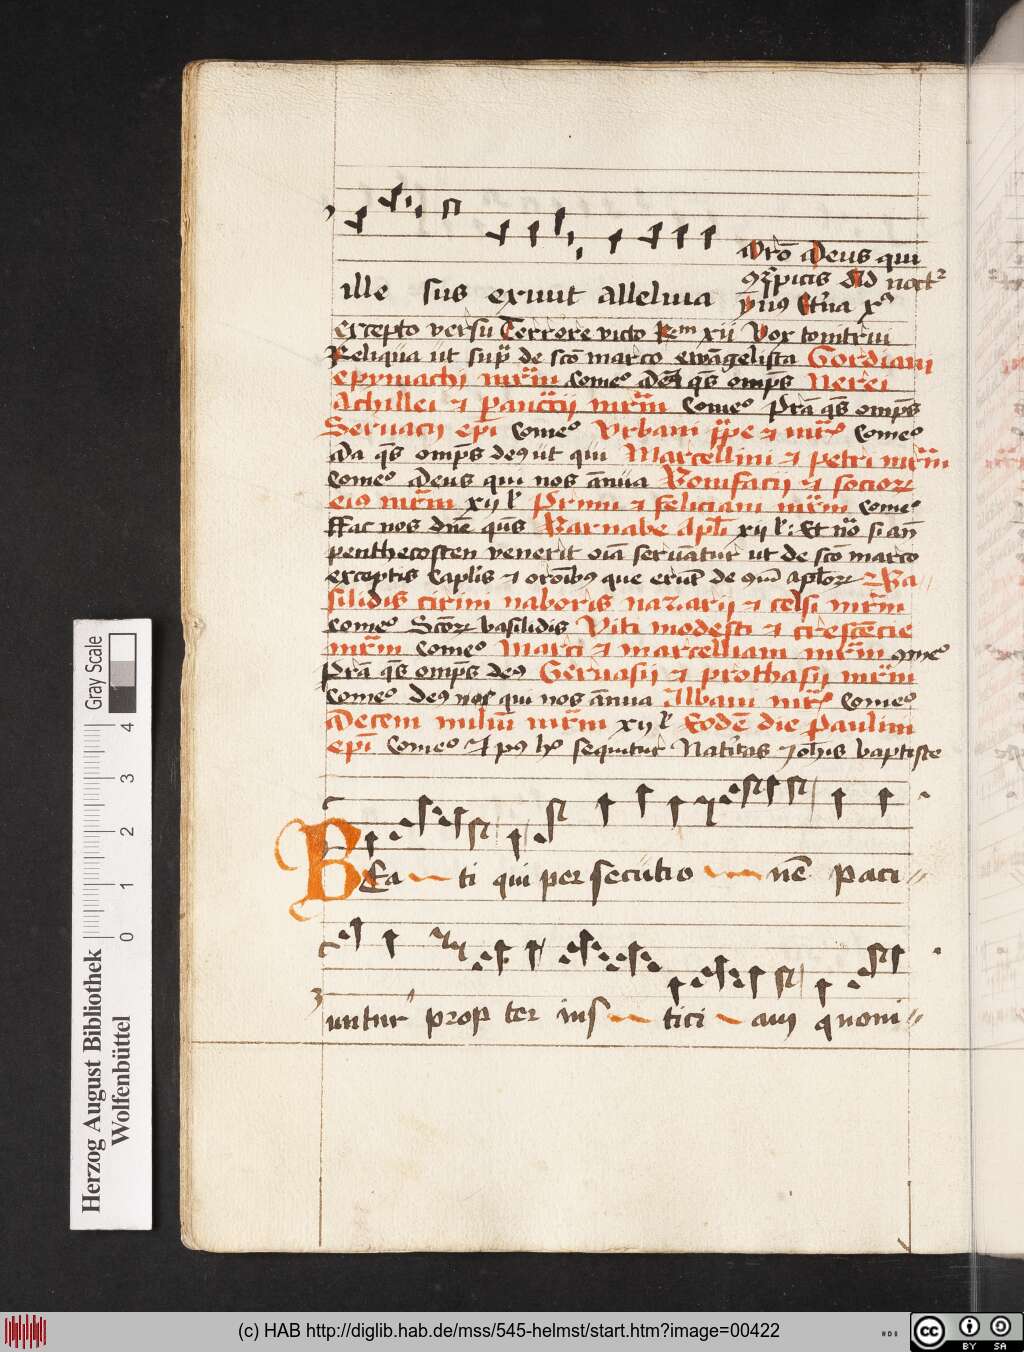 Oro Deus qui
ille sus exiuit alleluia
excepto versu Terrore victo xii Vox tonitrui
Reliqua ut supra de sco marco ewangelista Gordiani
epymachi mrm come⁹ qs omps Nerei
Achillei et Pancracii mrm come⁹ Pra qs omps
Seruacii epi come⁹ Vrbani ppe et mris come⁹
Da qs omps de⁹ ut qui Marcellini et Petri mrm
come⁹ Deus qui nos annua Bonifacii et socior
ei⁹ mrm xii l Primi et feliciani mrm come⁹
ffac nos dne qus Barnabe Apli xii l Et no si an
penthecosten venerit oia seruatur ut de sco marco
exceptis caplis et oronib⁹ que erunt de apl Ba
silidis cirini naboris nazarii et celsi mrm
come⁹ Scor basilidis Viti modesti et crescecie
mrm come⁹ Marci et marcelliani mrm come⁹
Pra qs omps de⁹ Geruasii et prothasii mrm
come⁹ de⁹ qui nos annua Albani mris come⁹
Decem miliu mrm xii l Eode die Paulini
epi come⁹ Et p⁹ h sequitur Natitas Johis baptiste
BEa ti qui per secutio nē paci
untur prop ter ius tici am quoni
Gray Scale
4 3 2 1 0
Herzog August Bibliothek
Wolfenbüttel
(c) HAB http://diglib.hab.de/mss/545-helmst/start.htm?image=00422
cc BY SA